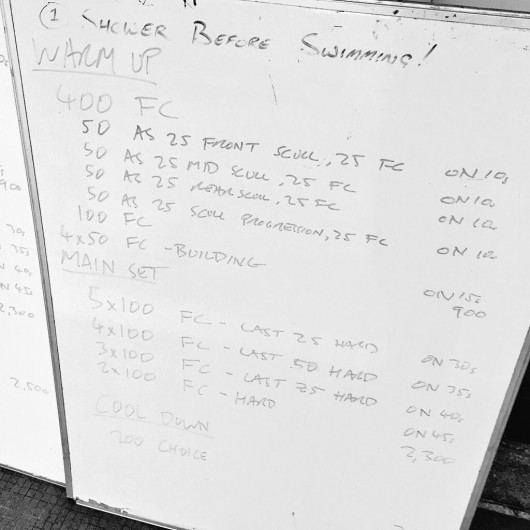 ① SHOWER BEFORE SWIMMING!
WARM UP
400 FC
50 AS 25 FRONT SCULL, 25 FC ON 10s
50 AS 25 MID SCULL, 25 FC ON 10s
50 AS 25 REAR SCULL, 25 FC ON 10s
50 AS 25 SCULL PROGRESSION, 25 FC ON 10s
100 FC
4x50 FC - BUILDING ON 15s
900
MAIN SET
5x100 FC - LAST 25 HARD ON 30s
4x100 FC - LAST 50 HARD ON 35s
3x100 FC - LAST 75 HARD ON 40s
2x100 FC - HARD ON 45s
2,300
COOL DOWN
200 CHOICE
900
30s
35s
40s
N 45s
2,300
2,500